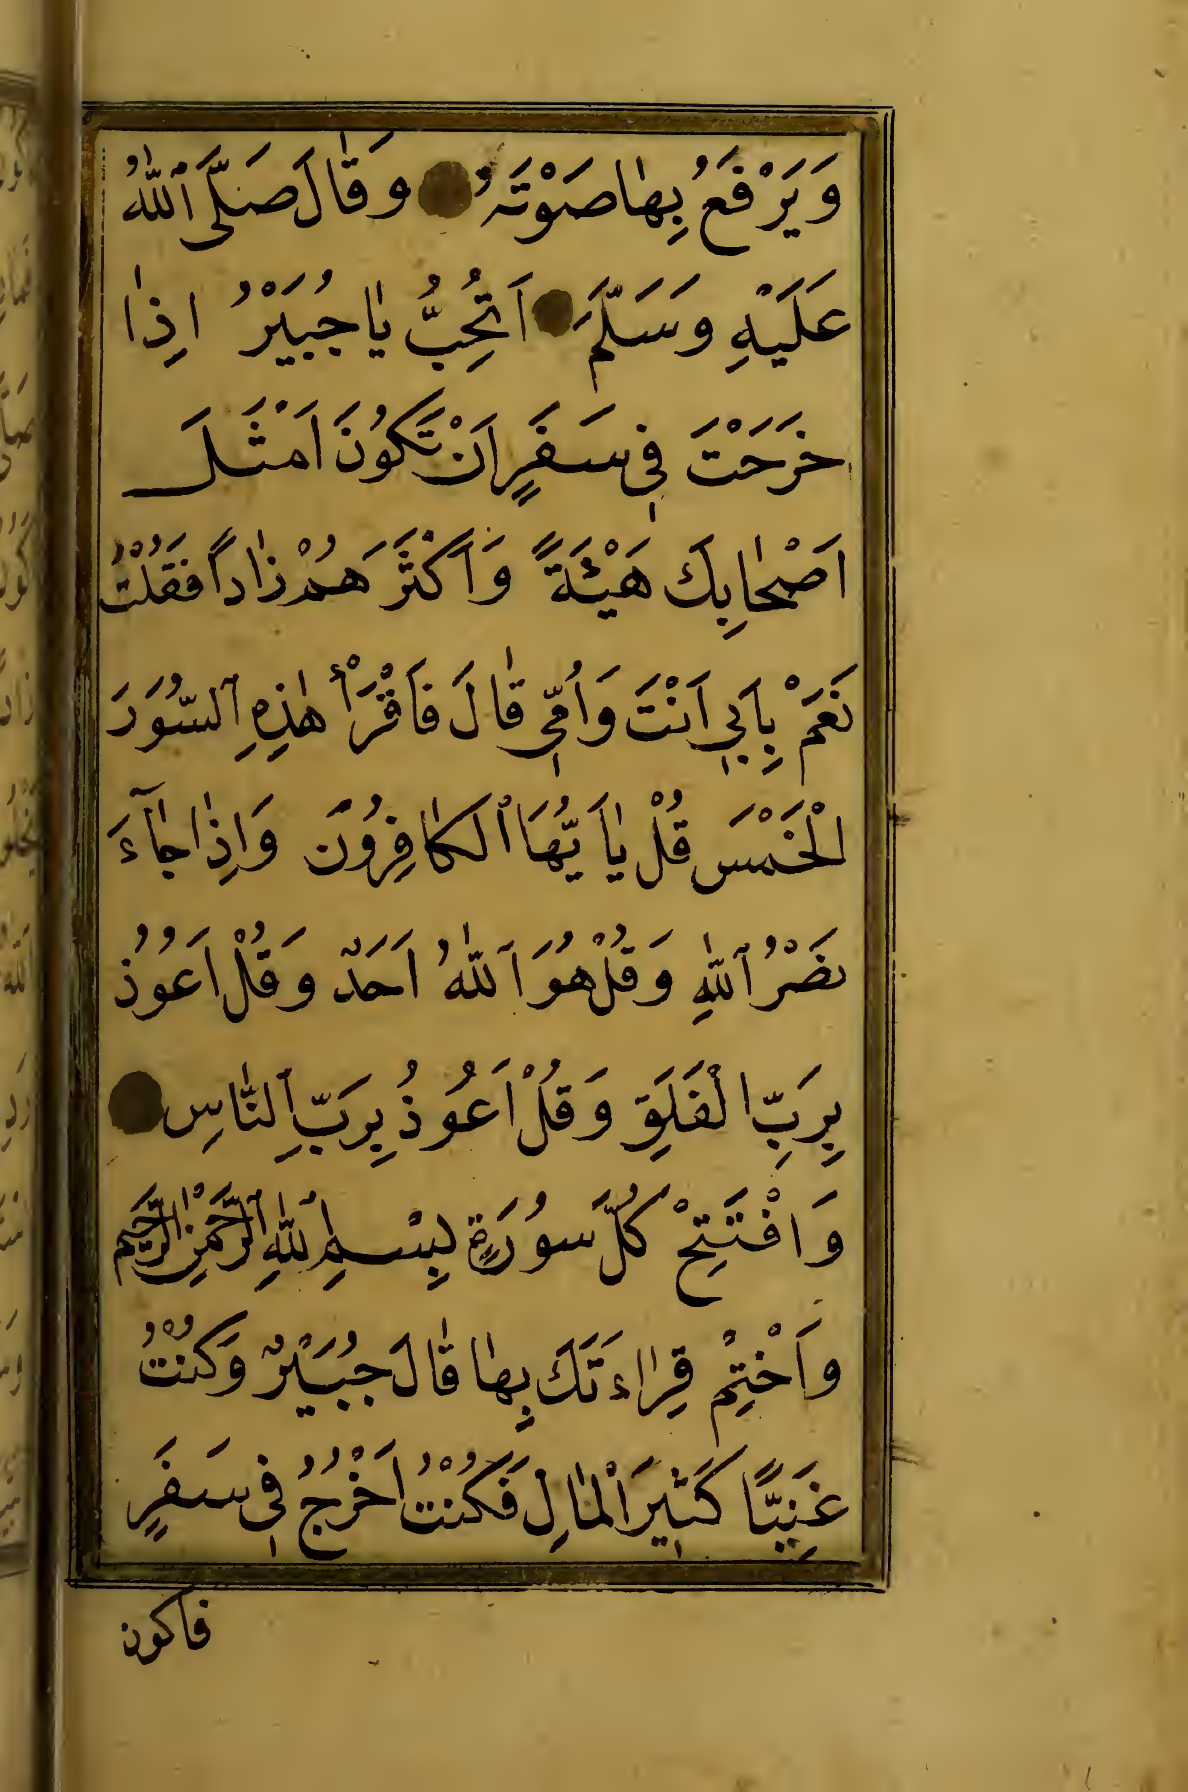 وَيَرْفَعُ بِهٰا صَوْتَهُ وَقٰالَ صَلَّى ٱللّٰهُ
عَلَيْهِ وَسَلَّمَ اَتُحِبُّ يٰا جُبَيْرُ اِذٰا
خَرَجْتَ فِي سَفَرٍ اَنْ تَكُونَ اَمْثَلَ
اَصْحٰابِكَ هَيْئَةً وَاَكْثَرَ هُمْ زٰاداً فَقُلْتُ
نَعَمْ بِاَبِي اَنْتَ وَاُمِّي قٰالَ فَاقْرَأْ هٰذِهِ ٱلسُّوَرَ
الْخَمْسَ قُلْ يٰاَ يُّهَا ٱلكٰافِرُونَ وَاِذٰا جٰآءَ
نَصْرُ ٱللّٰهِ وَقُلْ هُوَ ٱللّٰهُ اَحَدٌ وَقُلْ اَعُوْذُ
بِرَبِّ الْفَلَقِ وَقُلْ اَعُوْذُ بِرَبِّ ٱلنّٰاسِ
وَافْتَتِحْ كُلَّ سُورَةٍ بِسْمِ ٱللّٰهِ ٱلرَّحْمٰنِ ٱلرَّحِيمِ
وَاَخْتِمْ قِرٰاءَتَكَ بِهٰا قٰالَ جُبَيْرٌ وَكُنْتُ
غَنِيًّا كَثِيرَ الْمٰالِ فَكُنْتُ اَخْرُجُ فِي سَفَرٍ
فاكون